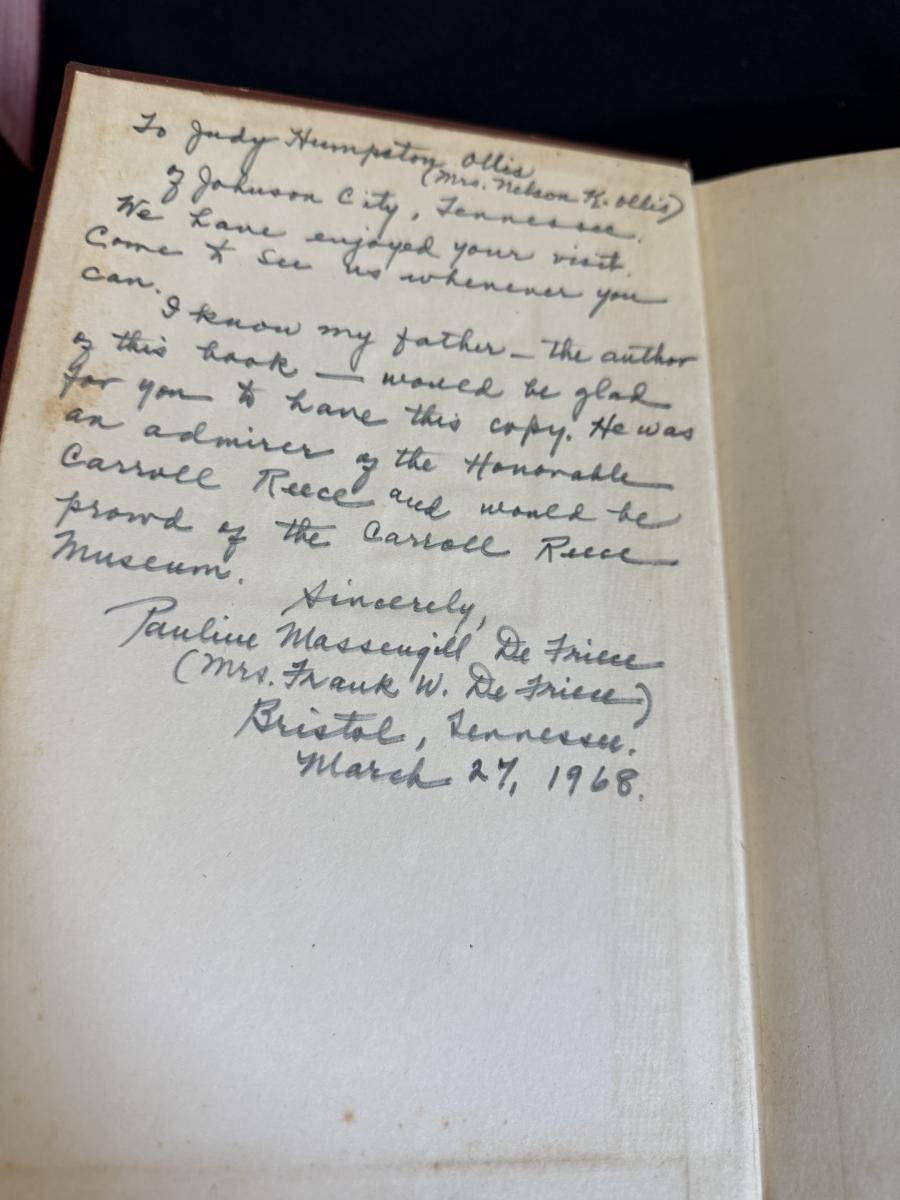 To Judy Humpston Ollis
(Mrs. Nelson K. Ollis)
of Johnson City, Tennessee.
We have enjoyed your visit.
Come to see us whenever you
can.
I know my father — the author
of this book — would be glad
for you to have this copy. He was
an admirer of the Honorable
Carroll Reece and would be
proud of the Carroll Reece
Museum.
Sincerely,
Pauline Massengill De Friece
(Mrs. Frank W. De Friece)
Bristol, Tennessee.
March 27, 1968.